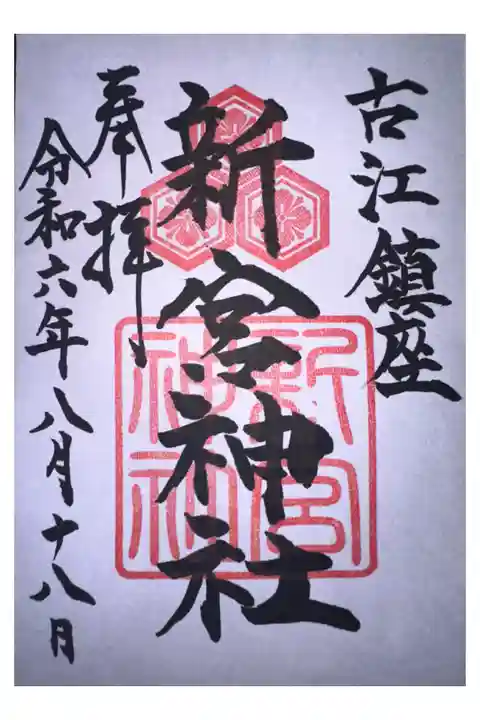 古江鎮座
新宮神社
新宮
神社
奉拝
令和六年八月十八月